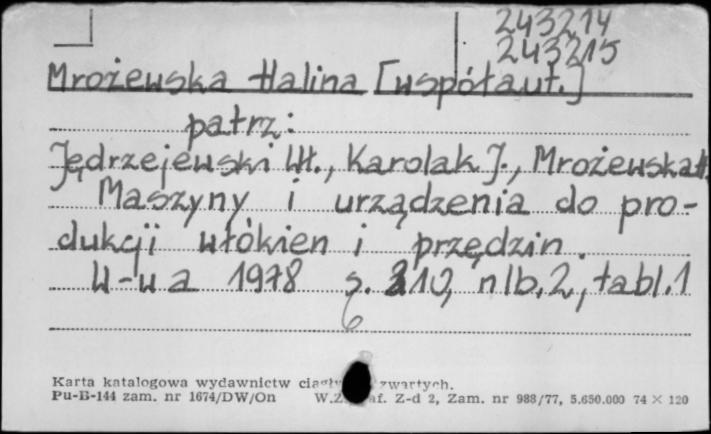 243214
243215
Mrożewska Halina [współaut.]
patrz:
Jędrzejewski Wł., Karolak J., Mrożewska H.
Maszyny i urządzenia do pro-
dukcji włókien i przędzin.
W-wa 1978 s. 310, nlb. 2, tabl. 1
6
Karta katalogowa wydawnictw zwartych.
Pu-B-144 zam. nr 1674/DW/On Z-d 2, Zam. nr 988/77, 5.650.000 74 × 120